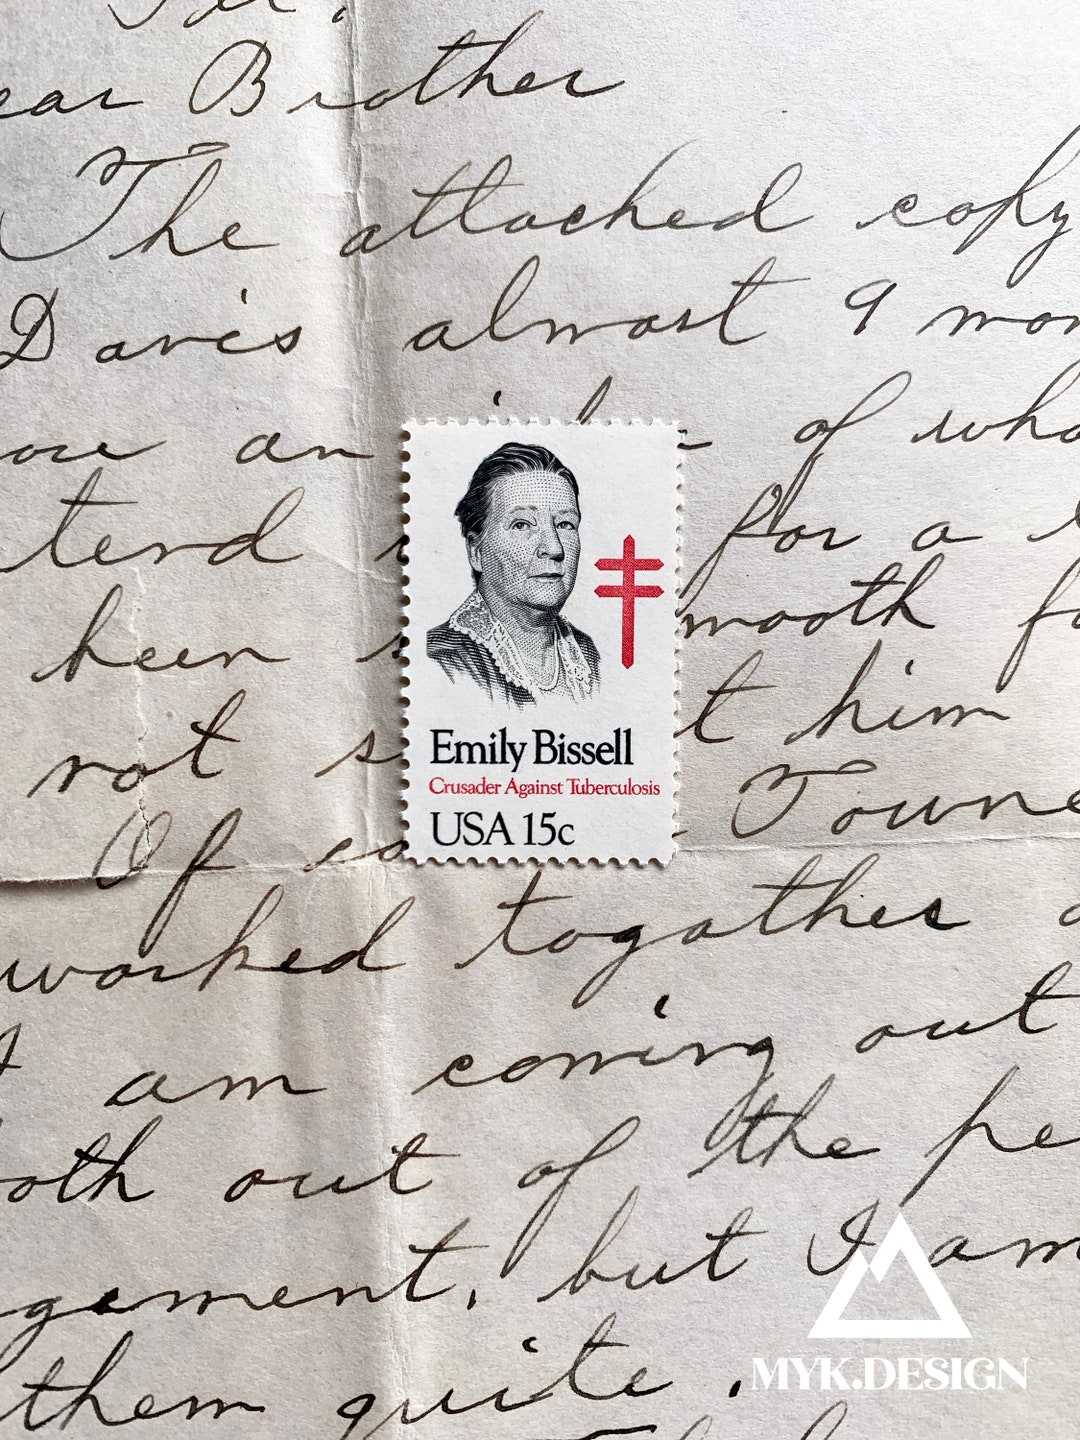 ear Brother
The attached copy
Davis almost 9 mon
an of who
tend for a
been smooth fo
not him
Of Towne
worked togather
I am coming out
oth out of the pe
gement, but I am
them quite.
Emily Bissell
Crusader Against Tuberculosis
USA 15c
MYK.DESIGN